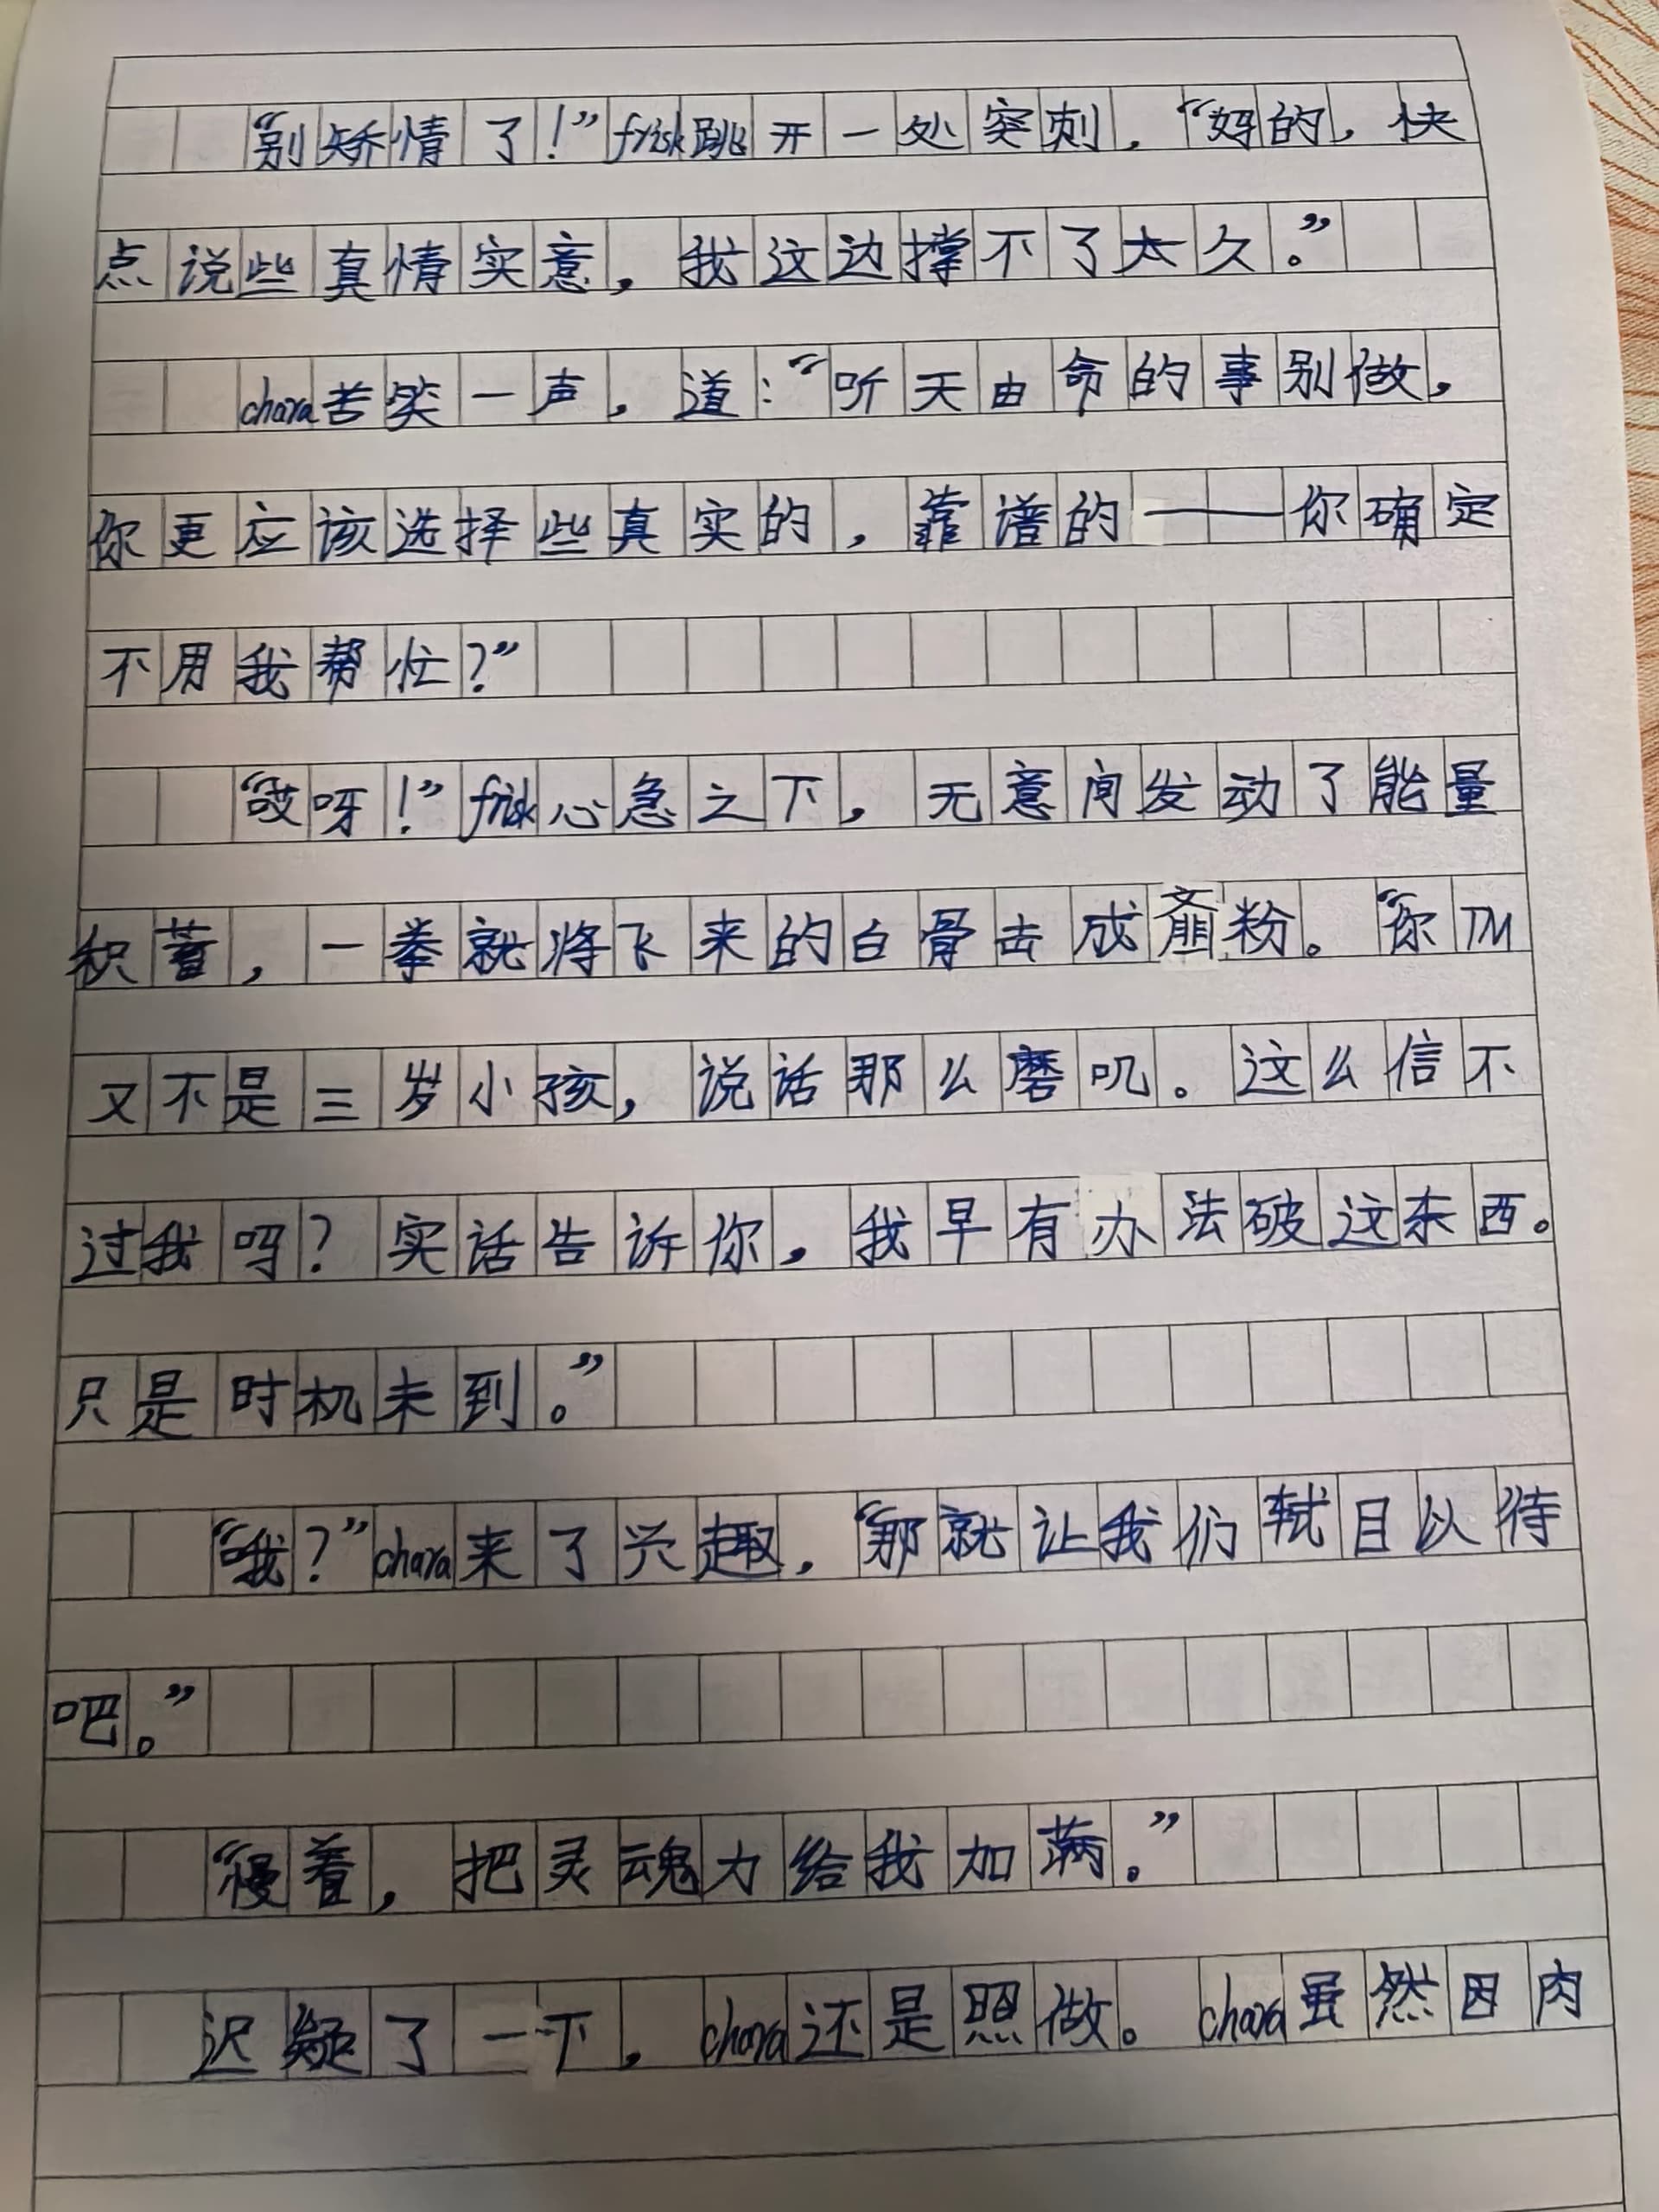 “别矫情了!”frisk跳开一处突刺,“好的,快
点说些真情实意,我这边撑不了太久。”
chara苦笑一声,道:“听天由命的事别做,
你更应该选择些真实的,靠谱的——你确定
不用我帮忙?”
“哎呀!”frisk心急之下,无意间发动了能量
积蓄,一拳就将飞来的白骨击成齑粉。“你TM
又不是三岁小孩,说话那么磨叽。这么信不
过我吗?实话告诉你,我早有办法破这东西。
只是时机未到。”
“哦?”chara来了兴趣,“那就让我们拭目以待
吧。”
“慢着,把灵魂力给我加满。”
迟疑了一下,chara还是照做。chara虽然因肉